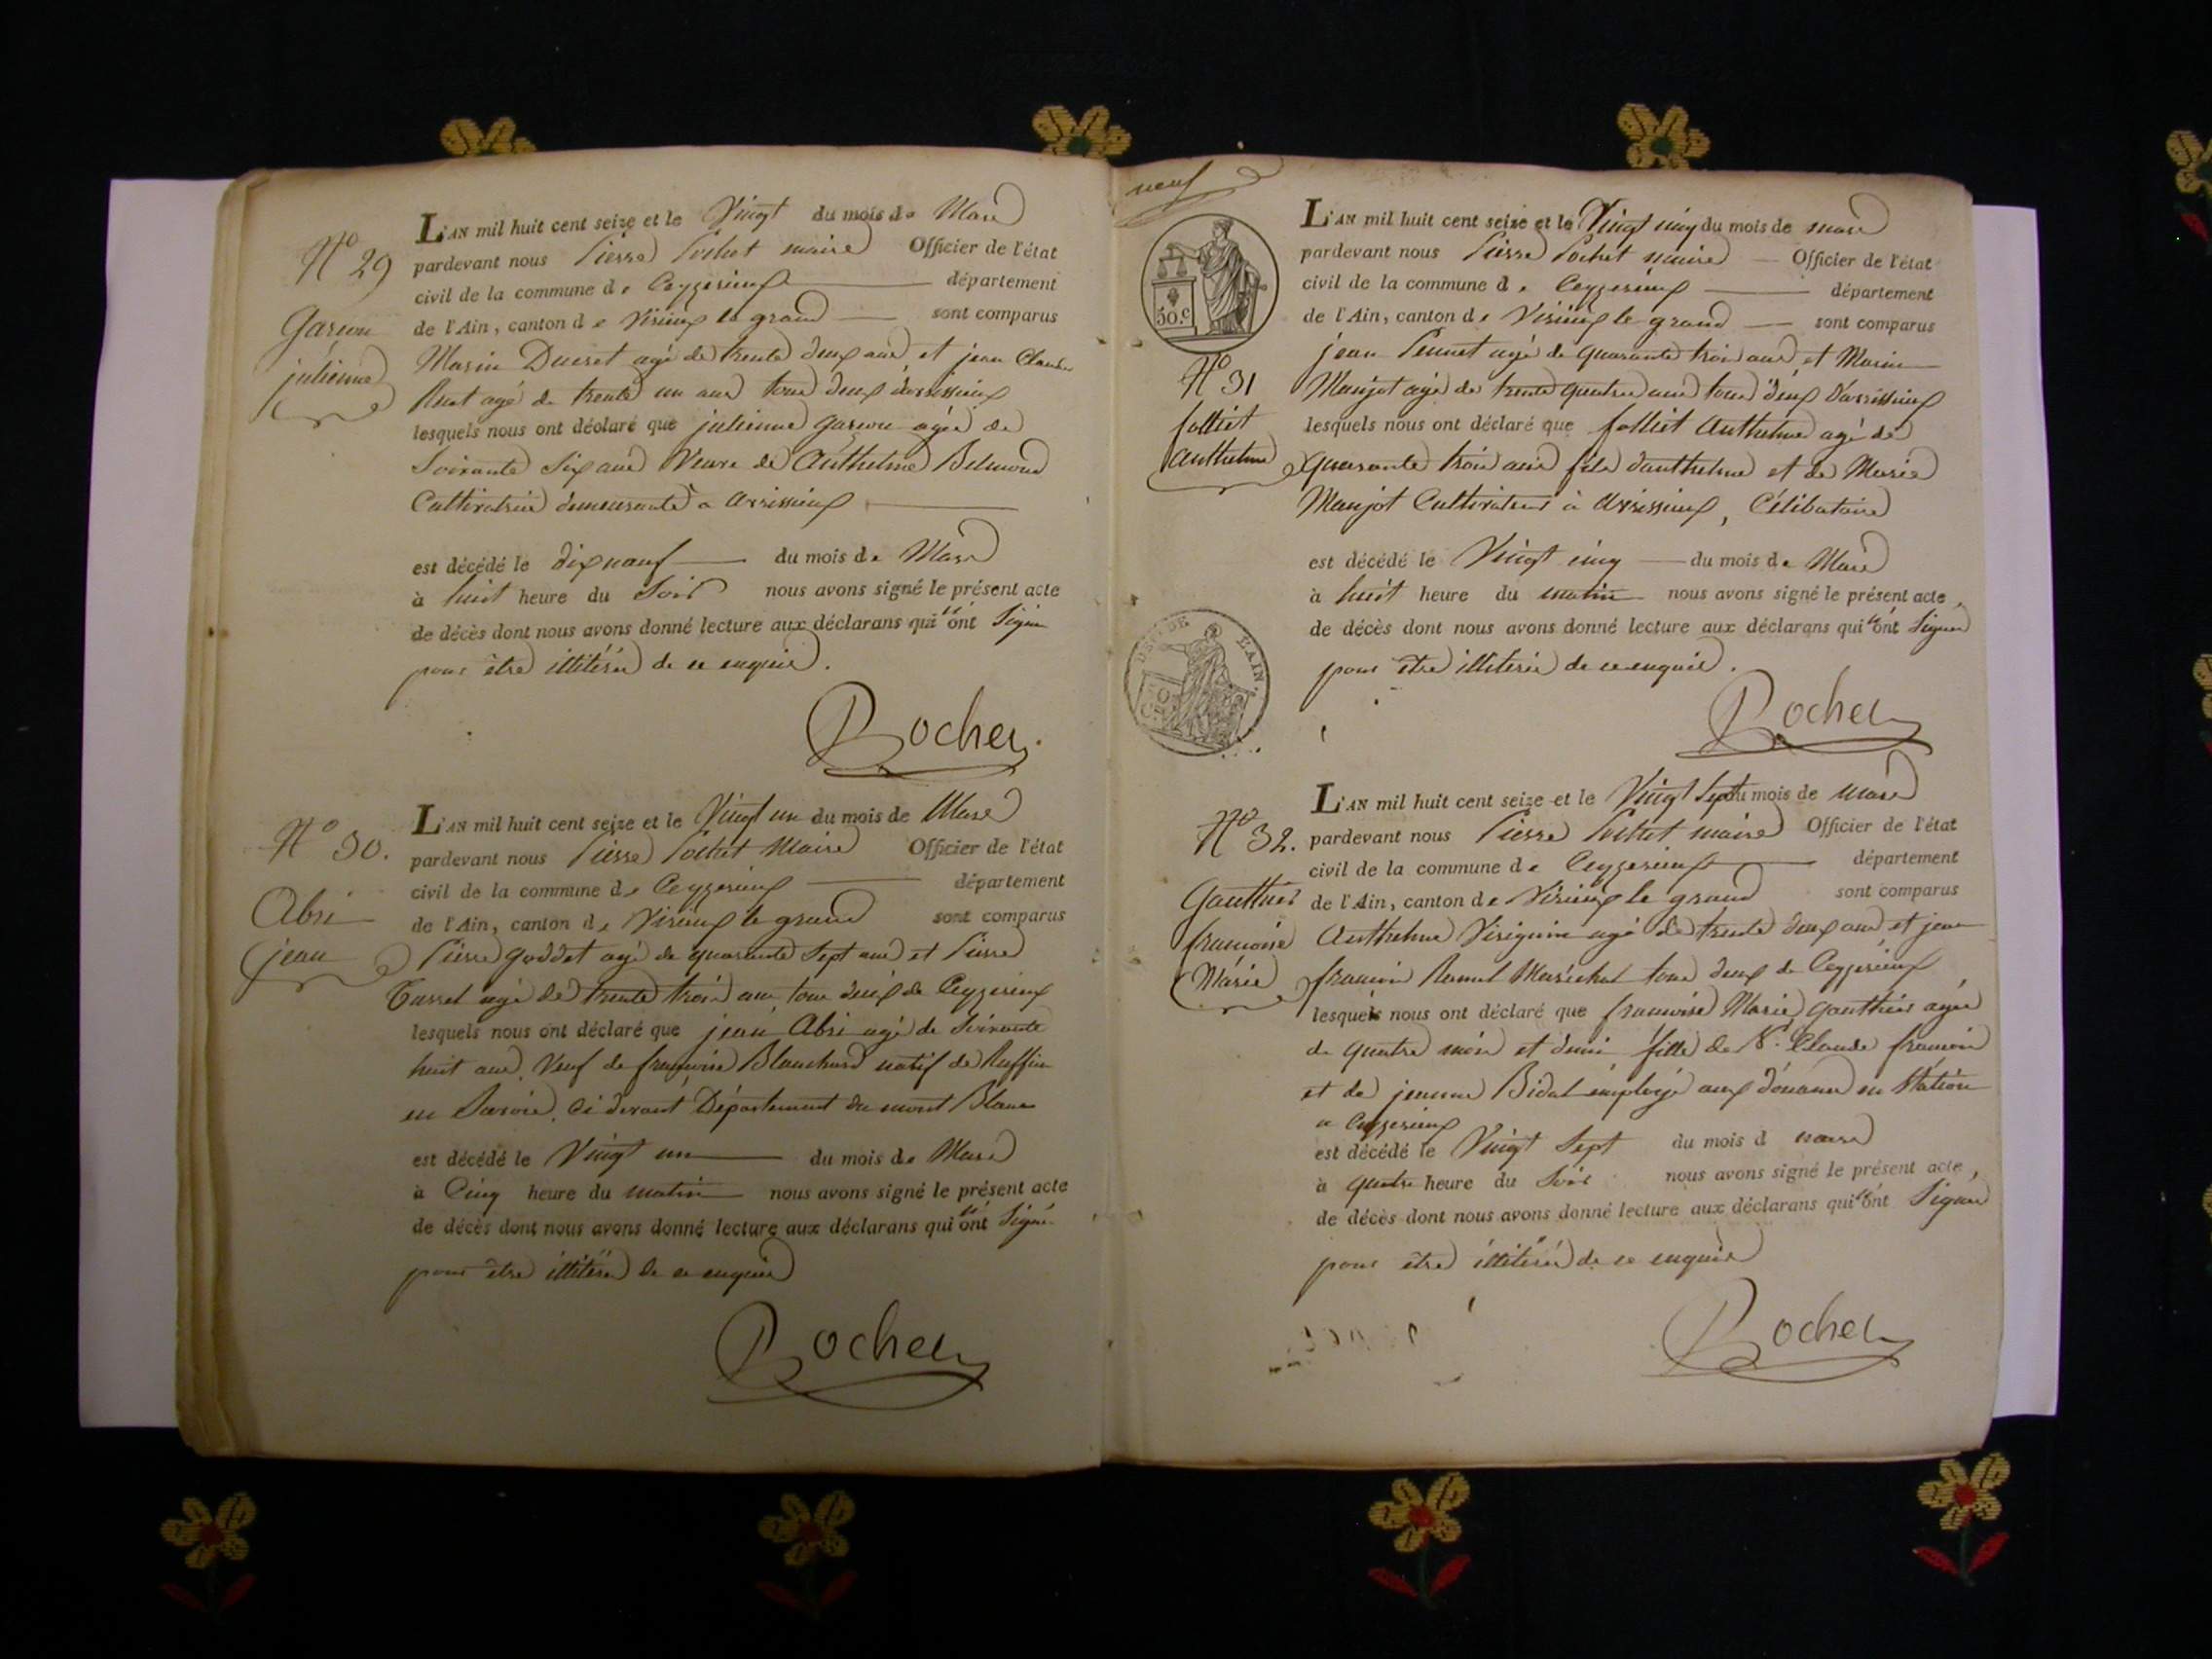 L'AN mil huit cent seize et le Vingt du mois de Mars
N° 29
pardevant nous Pierre Pochet maire Officier de l'état
civil de la commune de Ceyzerieux département
Garçon
de l'Ain, canton de Virieux le grand sont comparus
julienne
Marin Ducret agé de trente deux ans et jean Claude
agé de trente un ans tous deux
lesquels nous ont déclaré que julienne garçon agée de
Soixante Six ans Veuve de Anthelme Belmond
Cultivatrice demeurante à avrissieux
est décédé le dix neuf du mois de Mars
à huit heure du Soir nous avons signé le présent acte
de décès dont nous avons donné lecture aux déclarans qui n'ont Signé
pour être illitérés de ce enquis.
Pochet
L'AN mil huit cent seize et le Vingt un du mois de Mars
N° 30.
pardevant nous Pierre Pochet Maire Officier de l'état
civil de la commune de Ceyzerieux département
Abri
de l'Ain, canton de Virieux le grand sont comparus
jean
Pierre goddet agé de quarante Sept ans et Pierre
agé de trente trois ans tous deux de Ceyzerieux
lesquels nous ont déclaré que jean Abri agé de Soixante
huit ans, Veuf de françoise Blanchard natif de Ruffieu
en Savoie, ci devant Département du mont Blanc
est décédé le Vingt un du mois de Mars
à Cinq heure du matin nous avons signé le présent acte
de décès dont nous avons donné lecture aux déclarans qui n'ont Signé
pour être illitérés de ce enquis
Pochet
neuf
50.c
L'AN mil huit cent seize et le Vingt cinq du mois de mars
pardevant nous Pierre Pochet maire Officier de l'état
civil de la commune de Ceyzerieux département
de l'Ain, canton de Virieux le grand sont comparus
N° 31
jean Pennet agé de quarante trois ans et Marin
Manjot agé de trente quatre ans tous deux d'avrissieux
folliet
lesquels nous ont déclaré que folliet Anthelme agé de
anthelme
quarante trois ans fils d'anthelme et de Marie
Manjot Cultivateur à Avrissieux, Célibataire
est décédé le Vingt cinq du mois de Mars
à huit heure du matin nous avons signé le présent acte,
de décès dont nous avons donné lecture aux déclarans qui n'ont Signé
pour être illitérés de ce enquis.
Pochet
L'AN mil huit cent seize et le Vingt Sept du mois de mars
N° 32.
pardevant nous Pierre Pochet maire Officier de l'état
civil de la commune de Ceyzerieux département
Gauthier
de l'Ain, canton de Virieux le grand sont comparus
françoise
Anthelme agé de trente deux ans et jean
Marie
françois Maréchal tous deux de Ceyzerieux
lesquels nous ont déclaré que françoise Marie gauthier agée
de quatre mois et demi fille de Sr. Claude françois
et de jeanne Bidal employé aux douanes en Station
a Ceyzerieux
est décédé le Vingt Sept du mois d mars
à quatre heure du Soir nous avons signé le présent acte,
de décès dont nous avons donné lecture aux déclarans qui n'ont Signé
pour être illitérés de ce enquis
Pochet